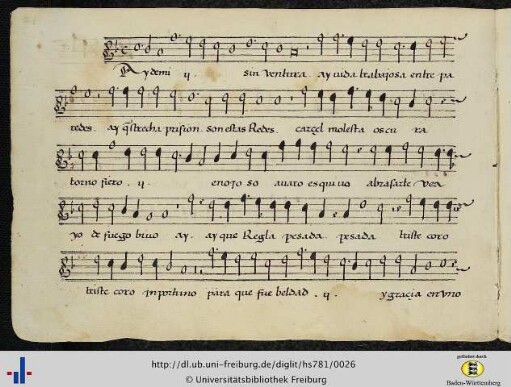 Ay de mi ij sin ventura. ay vida trabajosa entre pa
redes. ay q̃ strecha prision. son estas Redes. carçel molesta oscu ra
torno fiero. ij. enojo so auaro esquiuo abrasarte vea
yo de fuego biuo ay. ay que Regla pesada pesada triste coro
triste coro inportuno para que fue beldad. ij. y gracia en vno
http://dl.ub.uni-freiburg.de/diglit/hs781/0026
© Universitätsbibliothek Freiburg
gefördert durch
Baden-Württemberg